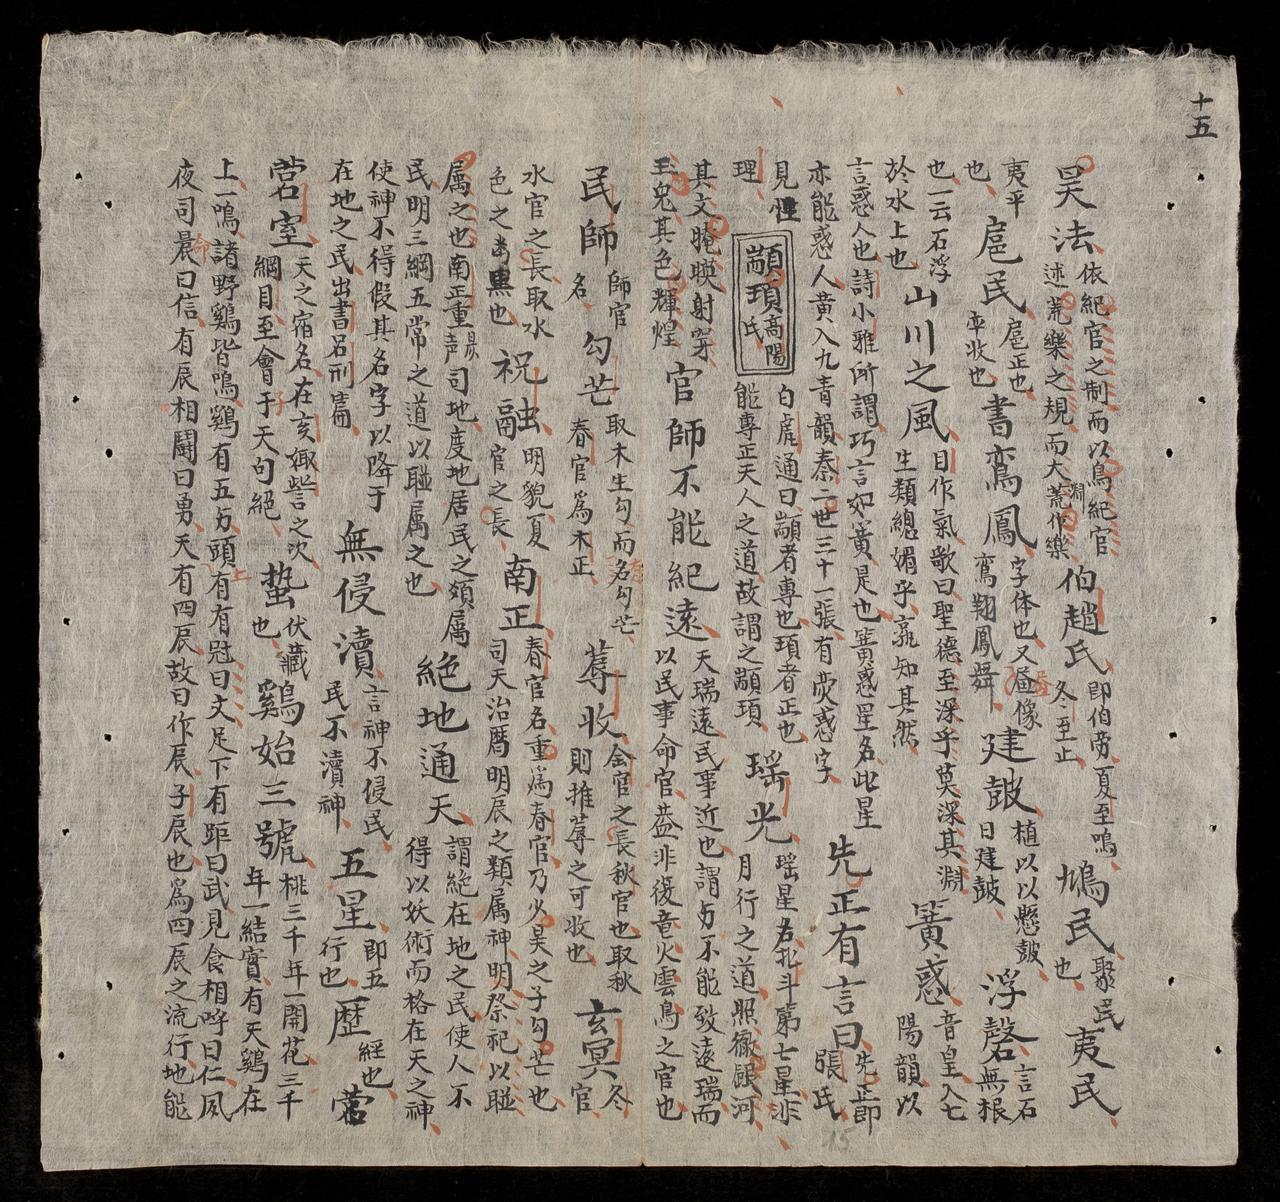 十五
昊法 依紀官之制而以鳥紀官述荒樂之規而大荒作樂 伯趙氏 即伯劳夏至鳴冬至止 鳩民 聚民也 夷民
夷平也 扈民 扈正也率收也 書鸞鳳 字体也又畫像鸞翔鳳舞 建皷 植以以懸皷曰建皷 浮磬 言石無根
也一云石浮於水上也 山川之風 目作氣歌曰聖德至深乎莫深其淵生類總媚乎孰知其然 簧惑 音皇入七陽韻以
言惑人也詩小雅所謂巧言如簧是也簧惑星名此星亦能惑人黄入九青韻秦二世三十一張有熒惑字 先正有言曰 先正即張氏
見性理 顓頊高陽氏 白虎通曰顓者專也頊者正也能專正天人之道故謂之顓頊 瑶光 瑶星名北斗第七星非月行之道照徹銀河
其文腌暎射穿玉兔其色輝煌 官師不能紀遠 天瑞遠民事近也謂与不能致遠瑞而以民事命官益非復竜火雲鳥之官也
民師 師官名 勾芒 取木生勾而名勾芒春官為木正 蓐收 金官之長秋官也取秋則推蓐之可收也 玄冥 冬官
水官之長取水色之黒也 祝融 明貌夏官之長 南正 春官名重為春官乃少昊之子勾芒也司天治暦明辰之類属神明祭祀以聮
属之也南正重司地度地居民之類属民明三綱五常之道以聮属之也 絕地通天 謂絶在地之民使人不得以妖術而格在天之神
使神不得假其名字以降于在地之民出書呂刑篇 無侵瀆 言神不侵民民不瀆神 五星 即五行也 歷 經也 營
營室 天之宿名在亥娵訾之次綱目至會于天句絕 蟄 伏藏也 鷄始三號 桃三千年一開花三千年一結實有天鷄在
上一鳴諸野鷄皆鳴鷄有五与頭有有冠曰文足下有距曰武見食相呼曰仁夙夜司晨曰信有辰相鬪曰勇天有四辰故曰作辰子辰也為四辰之流行地能
15